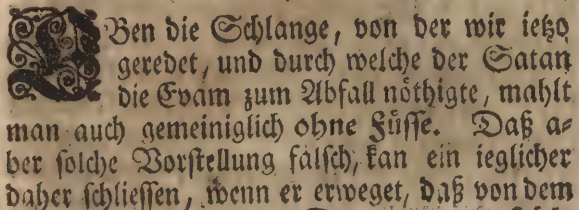 EBen die Schlange, von der wir ietzo
geredet, und durch welche der Satan
die Evam zum Abfall nöthigte, mahlt
man auch gemeiniglich ohne Füsse. Daß a-
ber solche Vorstellung falsch, kan ein ieglicher
daher schliessen, wenn er erweget, daß von dem